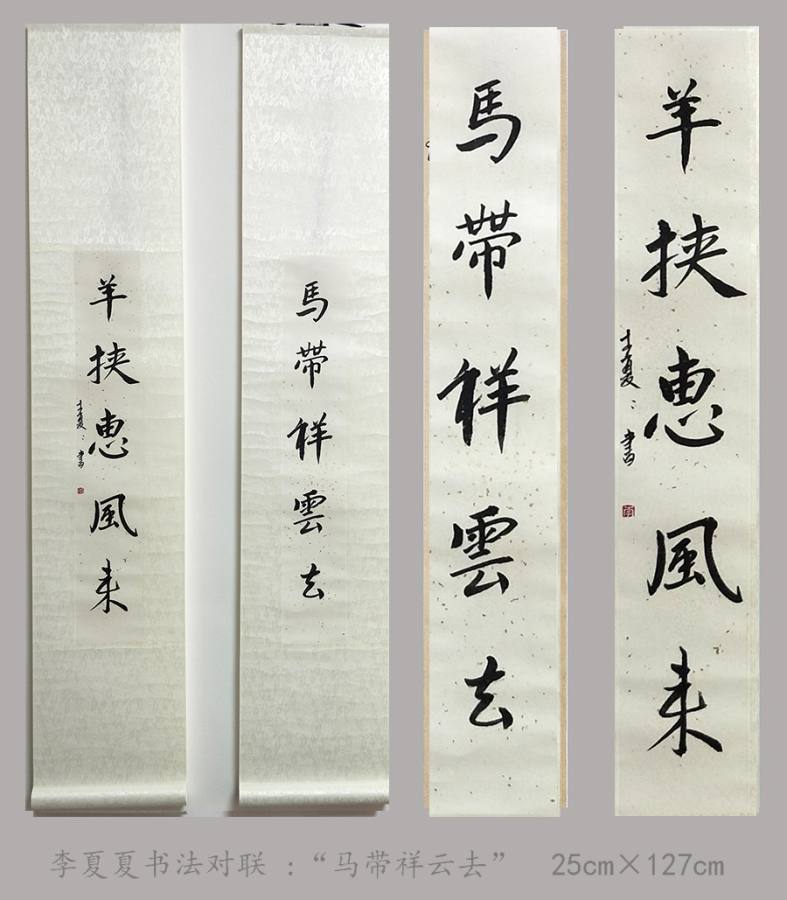 馬帶祥雲去
羊挟惠風来
李夏〻書
馬帶祥雲去
羊挟恵風来
李夏〻書
李夏夏书法对联：“马带祥云去” 25cm×127cm